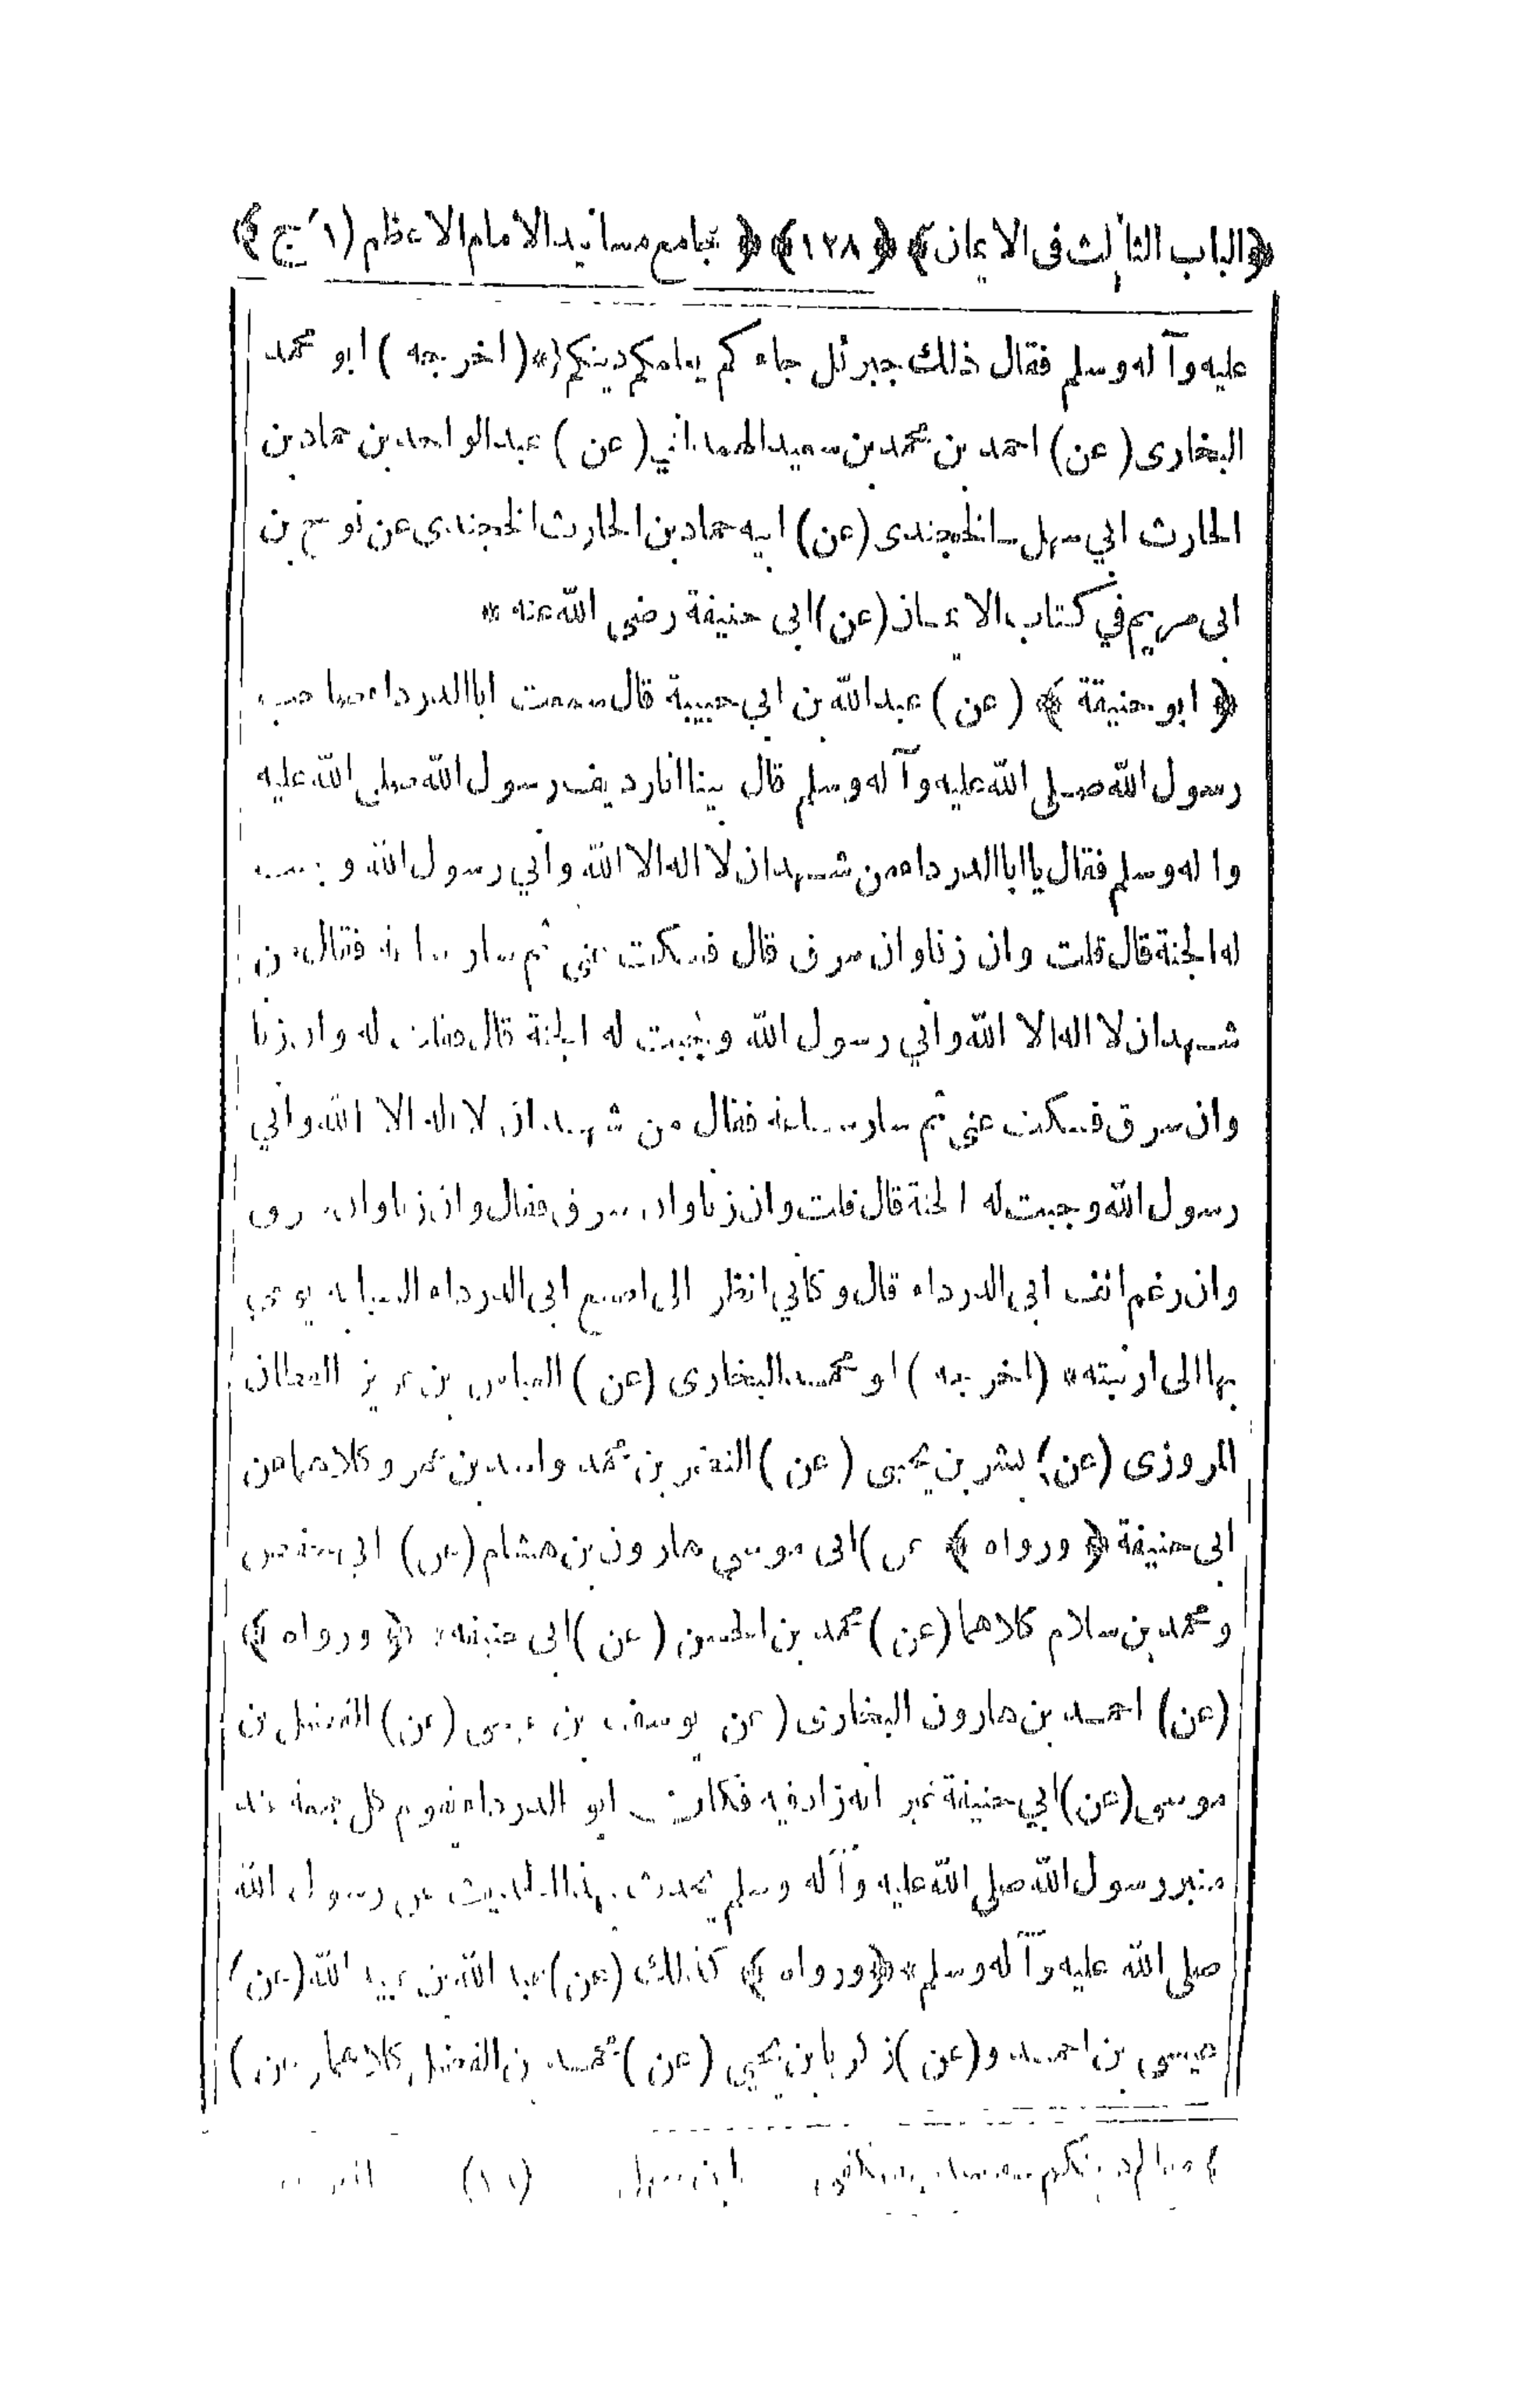 ﴿الباب الثالث في الايمان﴾ ﴿١٢٨﴾ ﴿جامع مسانيد الامام الاعظم (ج ١)﴾
عليه وآله وسلم فقال ذلك جبرئل جاءكم يعلمكم دينكم * (اخرجه) ابو محمد
البخارى (عن) احمد بن محمد بن سعيد الهمداني (عن) عبد الواحد بن حماد بن
الحارث ابي سهل الخجندى (عن) ابيه حماد بن الحارث الخجندى عن نوح بن
ابى مريم في كتاب الايمان (عن) ابى حنيفة رضى الله عنه *
﴿ابو حنيقة﴾ (عن) عبد الله بن ابي حبيبة قال سمعت ابا الدرداء صاحب
رسول الله صلى الله عليه وآله وسلم قال بينا انا رديف رسول الله صلى الله عليه
وا له وسلم فقال يا ابا الدرداء من شهد ان لا اله الا الله وأني رسول الله وجبت
له الجنة قال قلت وان زنا وان سرق قال فسكت عني ثم سار ساعة فقال من
شهد ان لا اله الا الله وأني رسول الله وجبت له الجنة قال فقلت له وان زنا
وان سرق فسكت عني ثم سار ساعة فقال من شهد ان لا اله الا الله وأني
رسول الله وجبت له الجنة قال قلت وان زنا وان سرق فقال وان زنا وان سرق
وان رغم انف ابى الدرداء قال وكأني انظر الى اصبع ابى الدرداء السبابة يومي
بها الى ارنبته * (اخرجه) ابو محمد البخارى (عن) العباس بن عزيز القطان
المروزى (عن) بشر بن يحيى (عن) النضر بن محمد واسد بن عمرو كلاهما عن
ابى حنيفة ﴿ورواه﴾ عن) ابى موسى هارون بن هشام (عن) ابى حفص
ومحمد بن سلام كلاهما (عن) محمد بن الحسن (عن) ابى حنيفة * ﴿ورواه﴾
(عن) احمد بن هارون البخارى (عن يوسف بن عيسى (عن) الفضل بن
موسى (عن) ابي حنيفة غير انه زاد فيه فكان ابو الدرداء يقوم كل جمعة عند
منبر رسول الله صلى الله عليه وآله وسلم يحدث بهذا الحديث عن رسول الله
صلى الله عليه وآله وسلم * ﴿ورواه﴾ كذلك (عن) عبد الله بن عبيد الله (عن)
عيسى بن احمد و (عن) زكريا بن يحيى (عن) محمد بن الفضل كلاهما (عن)
معالم دينكم